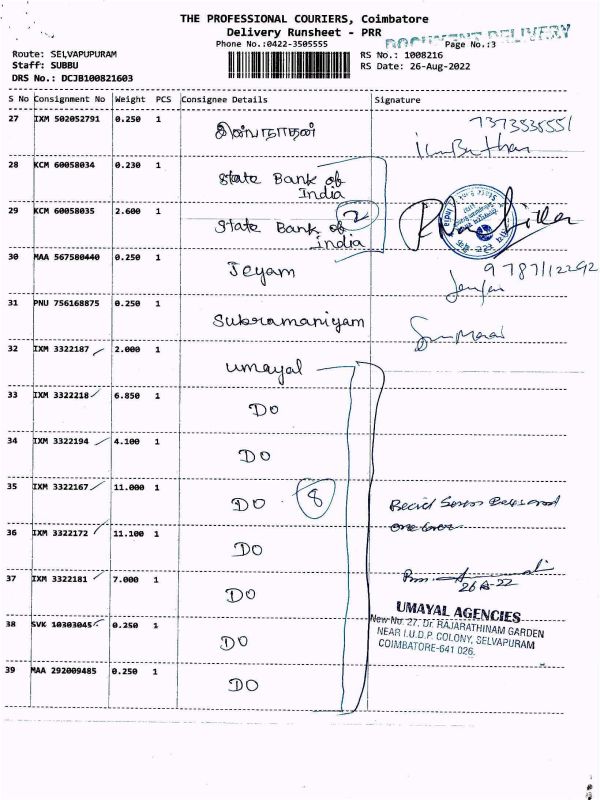 THE PROFESSIONAL COURIERS, Coimbatore
Delivery Runsheet - PRR
DOCUMENT DELIVERY
Phone No.:0422-3505555
Page No.:3
Route: SELVAPUPURAM
RS No.: 1008216
Staff: SUBBU
RS Date: 26-Aug-2022
DRS No.: DCJB100821603
S No Consignment No Weight PCS Consignee Details Signature
27 IXM 502052791 0.250 1
7373535551
28 KCM 60058034 0.230 1 State Bank of
India
29 KCM 60058035 2.600 1 State Bank of
India
2
30 MAA 567580440 0.250 1 Jeyam
9787112292
31 PNU 756168875 0.250 1 Subramaniyam
32 IXM 3322187 2.000 1 umayal
33 IXM 3322218 6.850 1 DO
34 IXM 3322194 4.100 1 DO
35 IXM 3322167 11.000 1 DO
8
36 IXM 3322172 11.100 1 DO
37 IXM 3322181 7.000 1 DO
38 SVK 10303045 0.250 1 DO
UMAYAL AGENCIES
New No. 27, Dr. RAJARATHINAM GARDEN
NEAR I.U.D.P. COLONY, SELVAPURAM
COIMBATORE-641 026.
39 MAA 292009485 0.250 1 DO